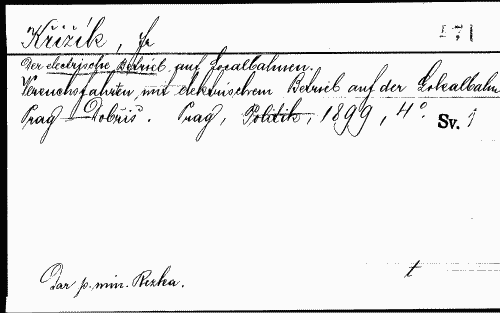 Křižík, Fr
Der electrische Betrieb auf Localbahnen.
Versuchsfahrten mit elektrischem Betrieb auf der Lokalbahn
Prag - Dobřiš. Prag, Politik, 1899, 4°. Sv. 1
Dar p. min. Rezka. t